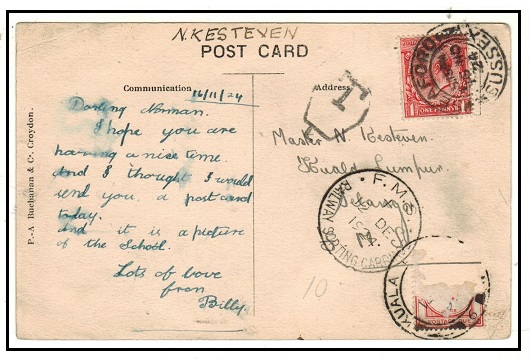 N. KESTEVEN
POST CARD
Communication 16/11/24
Address
Darling Norman.
I hope you are
having a nice time.
And I thought I would
send you a post card
today.
And it is a picture
of the School.
Lots of love
from
Billy.
Master N. Kesteven.
Kuala Lumpur.
Selangor
P.-A Buchanan & Co. Croydon.
T
SUSSEX
ONE PENNY
F.M.S.
RAILWAY SORTING CARRIAGE
DEC
KUALA
10